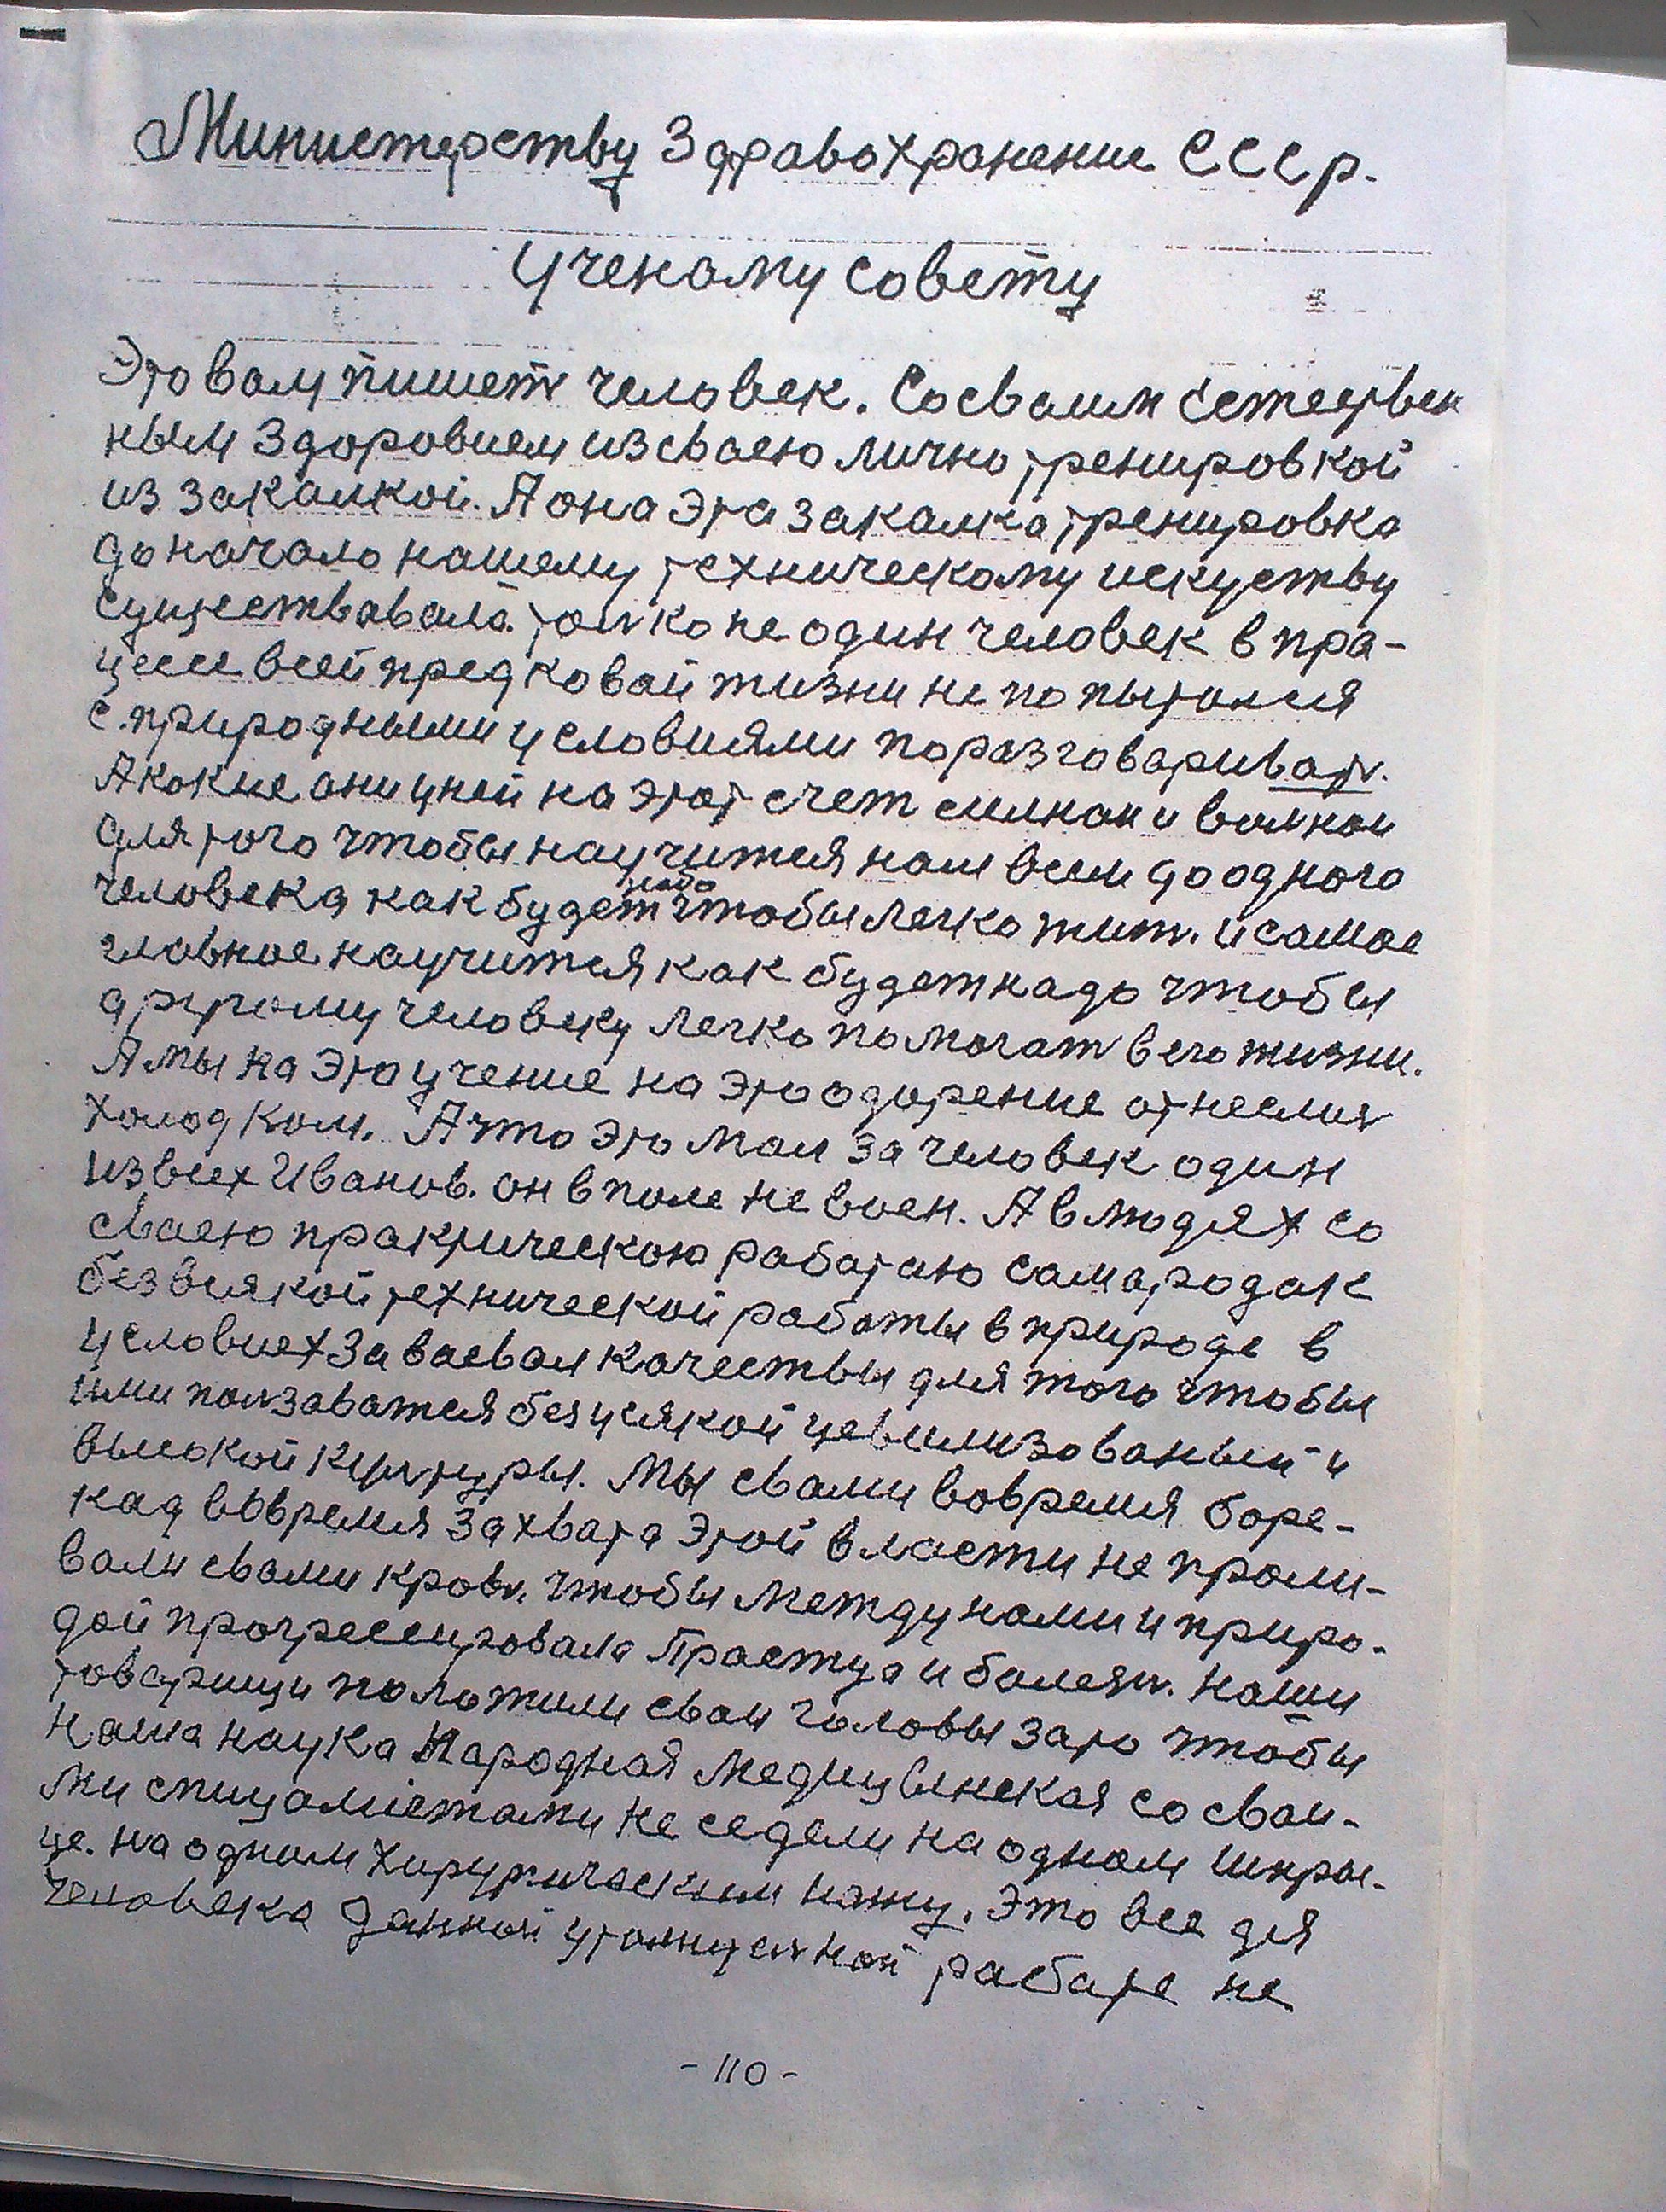 Министерству Здравохранение СССР.
Ученому совету
Это вам пишеть человек. Со сваим естествен
ным здоровием из сваею лично тренировкой
из закалкой. А она эта закалка тренировка
до начало нашему техническому искуству
существавала. только не один человек в пра-
цесе всей предковай жизни не попытался
с природными условиями поразговаривать.
А какие они у ней на этот счет
для того чтобы научится нам всем до одного
человека как будет надо чтобы легко жить. и самае
главное научится как будет надо чтобы
другому человеку легко помогать в его жизни.
А мы на это учение на это одарение отнеслись
холодком. А что это мол за человек один
из всех Иванов. он в поле не воен. А в людях со
сваею практическою работаю самародак
без всякой технической работы в природе в
условиех заваевал качествы для того чтобы
ими ползаватся без усякой цевилизованый и
высокой културы. Мы свами вовремя боре-
кад вовремя захвата этой власти не проли-
вали свами кровь. чтобы между нами и приро-
дой прогрессировала Прастуда и болезнь. наши
товарищи положили сваи головы зато чтобы
наша наука Народная медицынская со сваи-
ми спицалистами не седели на одном шпры-
це. на одном хирургическим ножу. Это все для
человека данной не
- 110 -